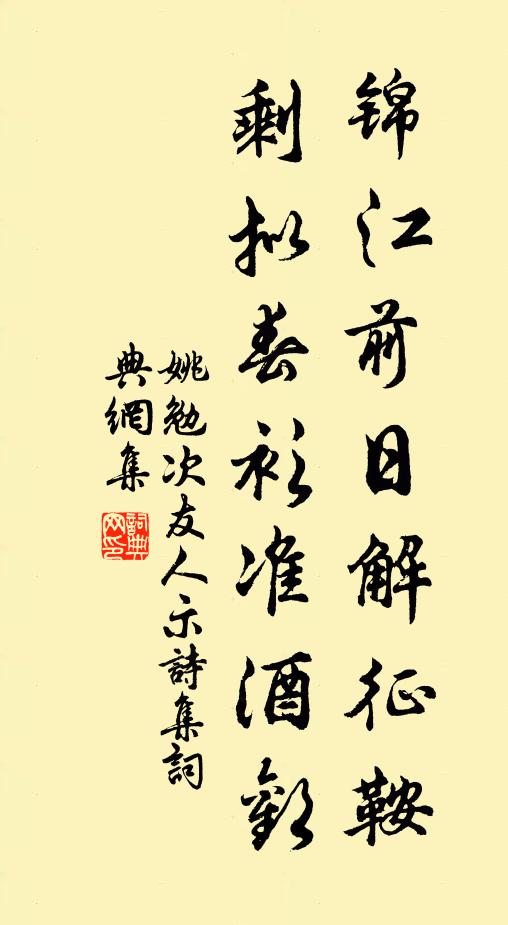 锦江前日解征鞍
剩拟春衫准酒歡
姚勉次友人示詩集詞
典網集
詞典網印